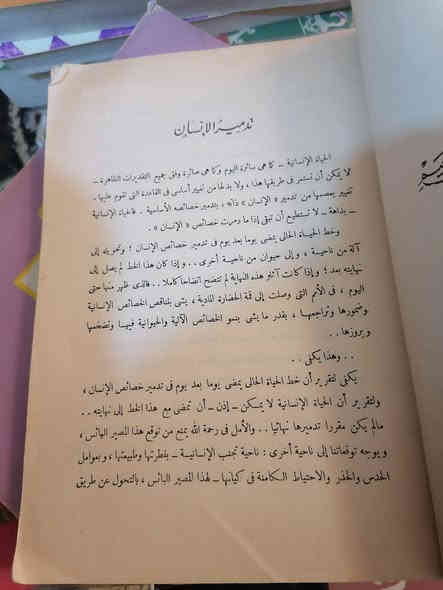 تدمير الإنسان
الحياة الإنسانية – كما هى سائرة اليوم وكما هى صائرة وفق جميع التقديرات الظاهرة –
لا يمكن أن تستمر فى طريقها هذا ، ولا بد لها من تغيير أساسى فى القاعدة التى تقوم عليها .
تغيير يعصمها من تدمير « الإنسان » ذاته ، بتدمير خصائصه الأساسية . فالحياة الإنسانية
– بداهة – لا تستطيع أن تبقى إذا ما دمرت خصائص « الإنسان » .
وخط الحياة الحالى يمضى يوما بعد يوم فى تدمير خصائص الإنسان ؛ وتحويله إلى
آلة من ناحية ، وإلى حيوان من ناحية أخرى . . وإذا كان هذا الخط لم يصل إلى
نهايته بعد ؛ وإذا كانت آثار هذه النهاية لم تتضح اتضاحا كاملا . . فالذى ظهر منها حتى
اليوم ، فى الأمم التى وصلت إلى قمة الحضارة المادية ، يشى بتناقص الخصائص الإنسانية
وضمورها وتراجعها ، بقدر ما يشى بنمو الخصائص الآلية والحيوانية فيها وتضخمها
وبروزها . .
. . وهذا يكفى . .
يكفى لتقرير أن خط الحياة الحالى يمضى يوما بعد يوم فى تدمير خصائص الإنسان ،
ولتقرير أن الحياة الإنسانية لا يمكن – إذن – أن تمضى مع هذا الخط إلى نهايته . .
مالم يكن مقررا تدميرها نهائيا . . والأمل فى رحمة الله يمنع من توقع هذا المصير البائس ،
ويوجه توقعاتنا إلى ناحية أخرى : ناحية تجنب الإنسانية – بفطرتها وطبيعتها ، وبعوامل
الحدس والحذر والاحتياط الكامنة فى كيانها – لهذا المصير البائس ، بالتحول عن طريق